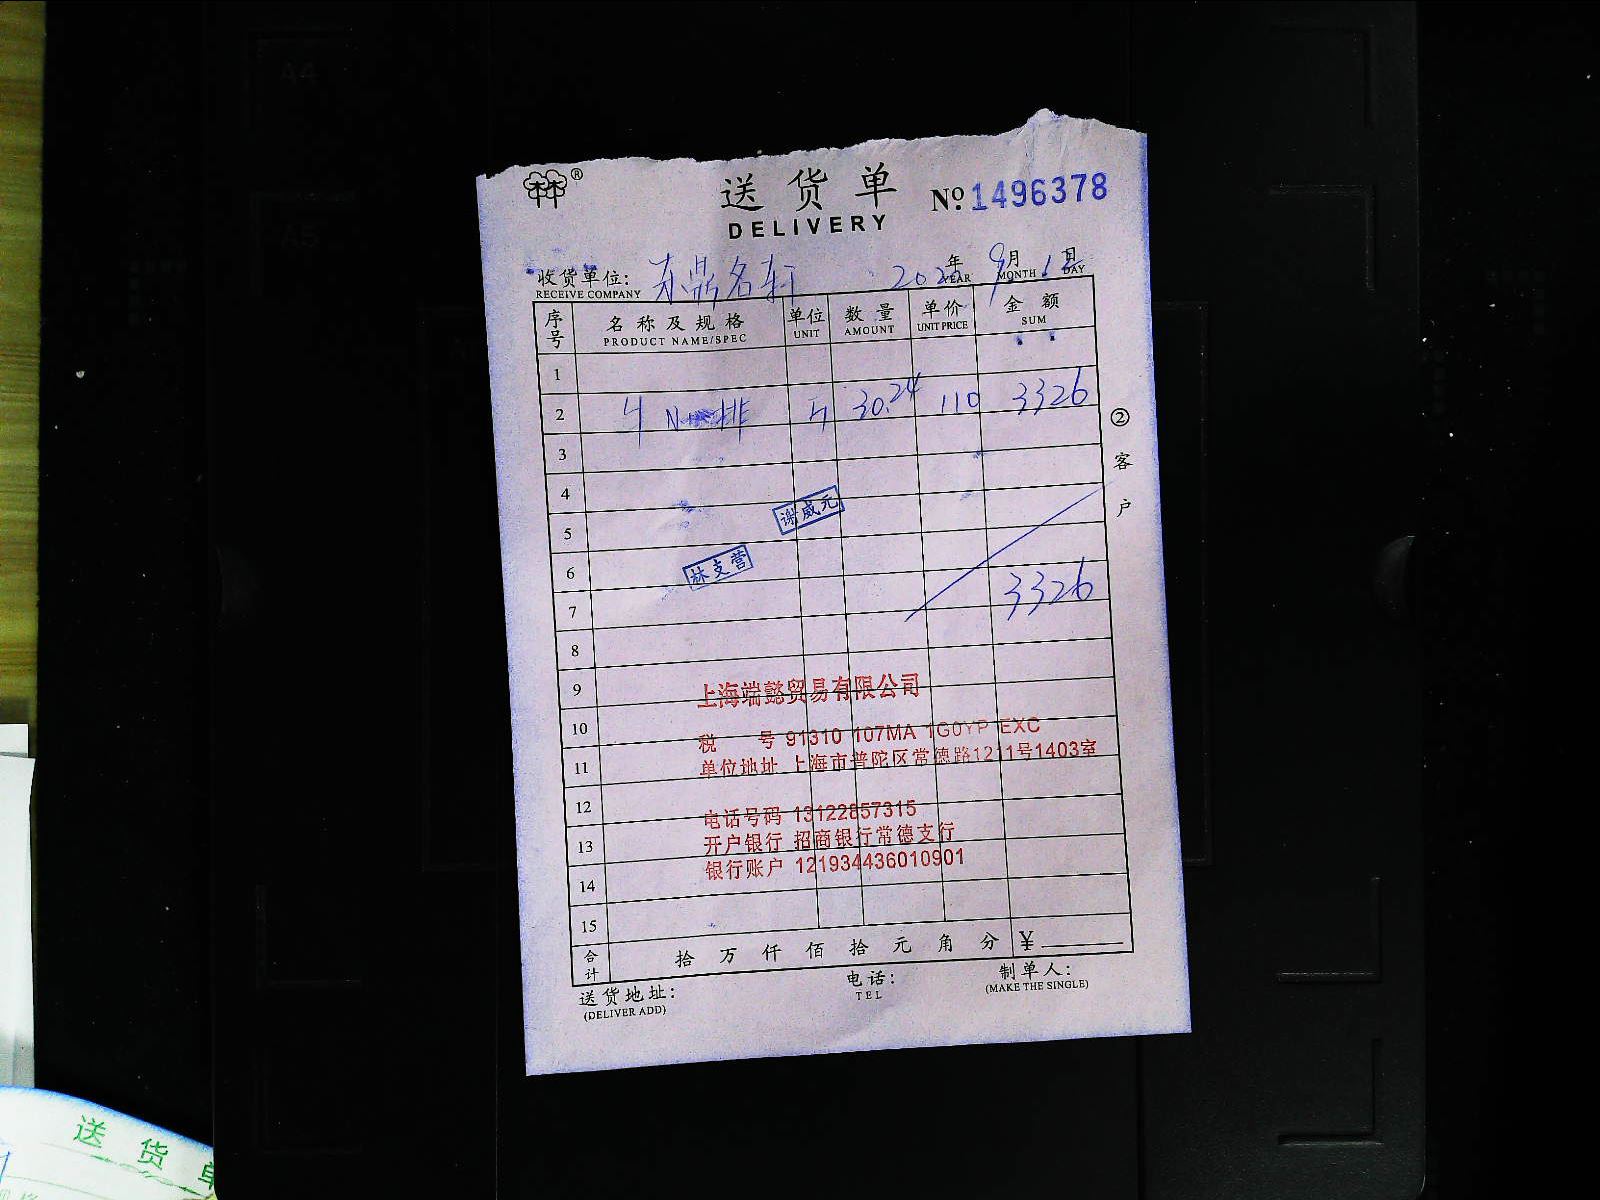 A4
A5
林® 送货单 № 1496378
DELIVERY
收货单位: 东鼎名轩 年 9月 12日
RECEIVE COMPANY YEAR MONTH DAY
序号 名称及规格 单位 数量 单价 金额
PRODUCT NAME/SPEC UNIT AMOUNT UNIT PRICE SUM
1
2 牛 排 斤 30.24 110 3326
3
4
5 谢威元
6 林支营
7 3326
8
9 上海端懿贸易有限公司
10 税 号 91310 107MA 1G0YP EXC
11 单位地址 上海市普陀区常德路1211号1403室
12 电话号码 13122857315
13 开户银行 招商银行常德支行
14 银行账户 121934436010901
15
合计 拾 万 仟 佰 拾 元 角 分 ¥
送货地址: 电话: 制单人:
(DELIVER ADD) TEL (MAKE THE SINGLE)
②客户
送货单